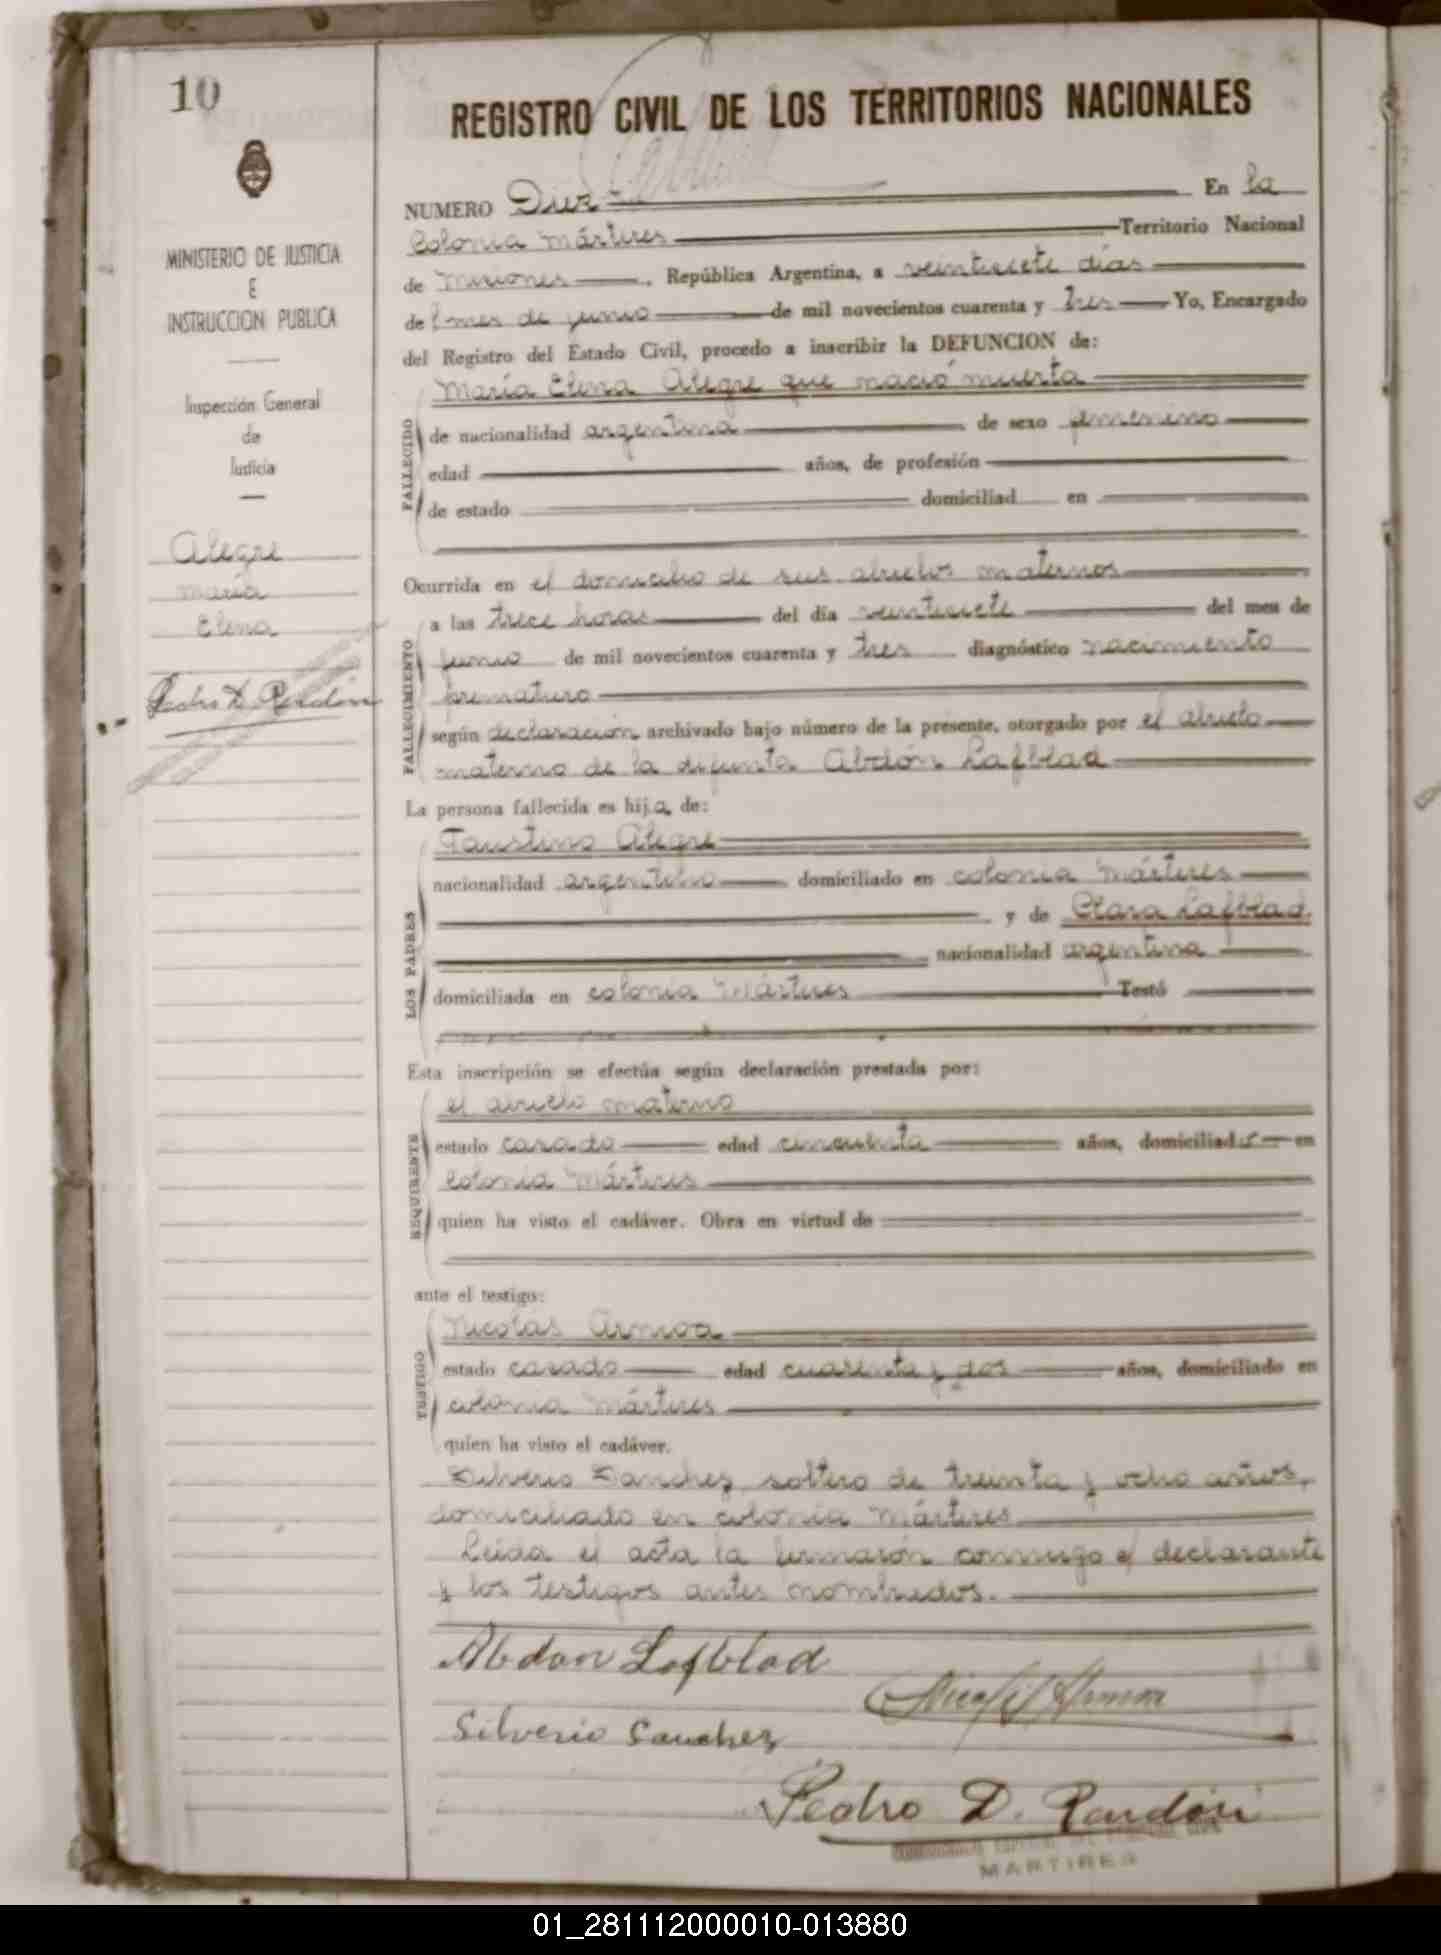 10
MINISTERIO DE JUSTICIA
E
INSTRUCCION PUBLICA
Inspección General
de
Justicia
Alegre
María
Elena
Pedro D. Rendón
REGISTRO CIVIL DE LOS TERRITORIOS NACIONALES
NUMERO Diez En la
Colonia Mártires Territorio Nacional
de Misiones, República Argentina, a veintisiete días
del mes de junio de mil novecientos cuarenta y tres Yo, Encargado
del Registro del Estado Civil, procedo a inscribir la DEFUNCION de:
FALLECIDO
María Elena Alegre que nació muerta
de nacionalidad argentina de sexo femenino
edad años, de profesión
de estado domiciliad en
Ocurrida en el domicilio de sus abuelos maternos
FALLECIMIENTO
a las trece horas del día veintisiete del mes de
junio de mil novecientos cuarenta y tres diagnóstico nacimiento
prematuro
según declaración archivado bajo número de la presente, otorgado por el abuelo
materno de la difunta Abdón Lafblad
La persona fallecida es hija de:
LOS PADRES
Faustino Alegre
nacionalidad argentino domiciliado en colonia Mártires
y de Clara Lafblad.
nacionalidad argentina
domiciliada en colonia Mártires Testó
Esta inscripción se efectúa según declaración prestada por:
REQUIRENTE
el abuelo materno
estado casado edad cincuenta años, domiciliado en
colonia Mártires
quien ha visto el cadáver. Obra en virtud de
ante el testigo:
TESTIGO
Nicolás Armoa
estado casado edad cuarenta y dos años, domiciliado en
colonia Mártires
quien ha visto el cadáver.
Silverio Sanchez, soltero de treinta y ocho años,
domiciliado en colonia Mártires
Leida el acta la firmaron conmigo el declarante
y los testigos antes nombrados.
Abdon Lafblad
Silverio Sanchez
Pedro D. Rendón
MARTIRES
01_281112000010-013880